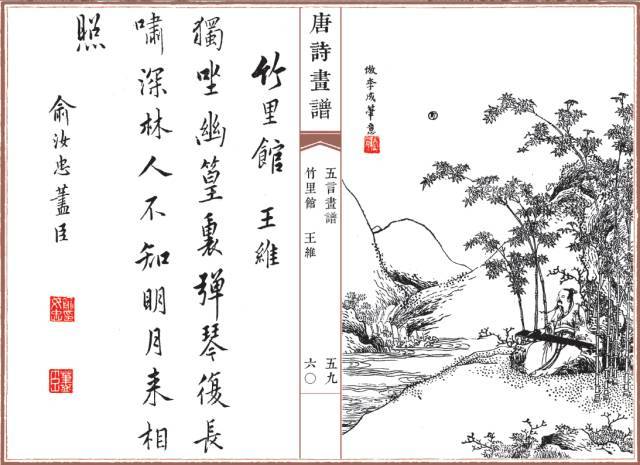 倣李成筆意
唐詩畫譜
五言畫譜 五九
竹里館 王維 六〇
竹里館 王維
獨坐幽篁裏彈琴復長
嘯深林人不知明月来相
照
俞汝忠藎臣